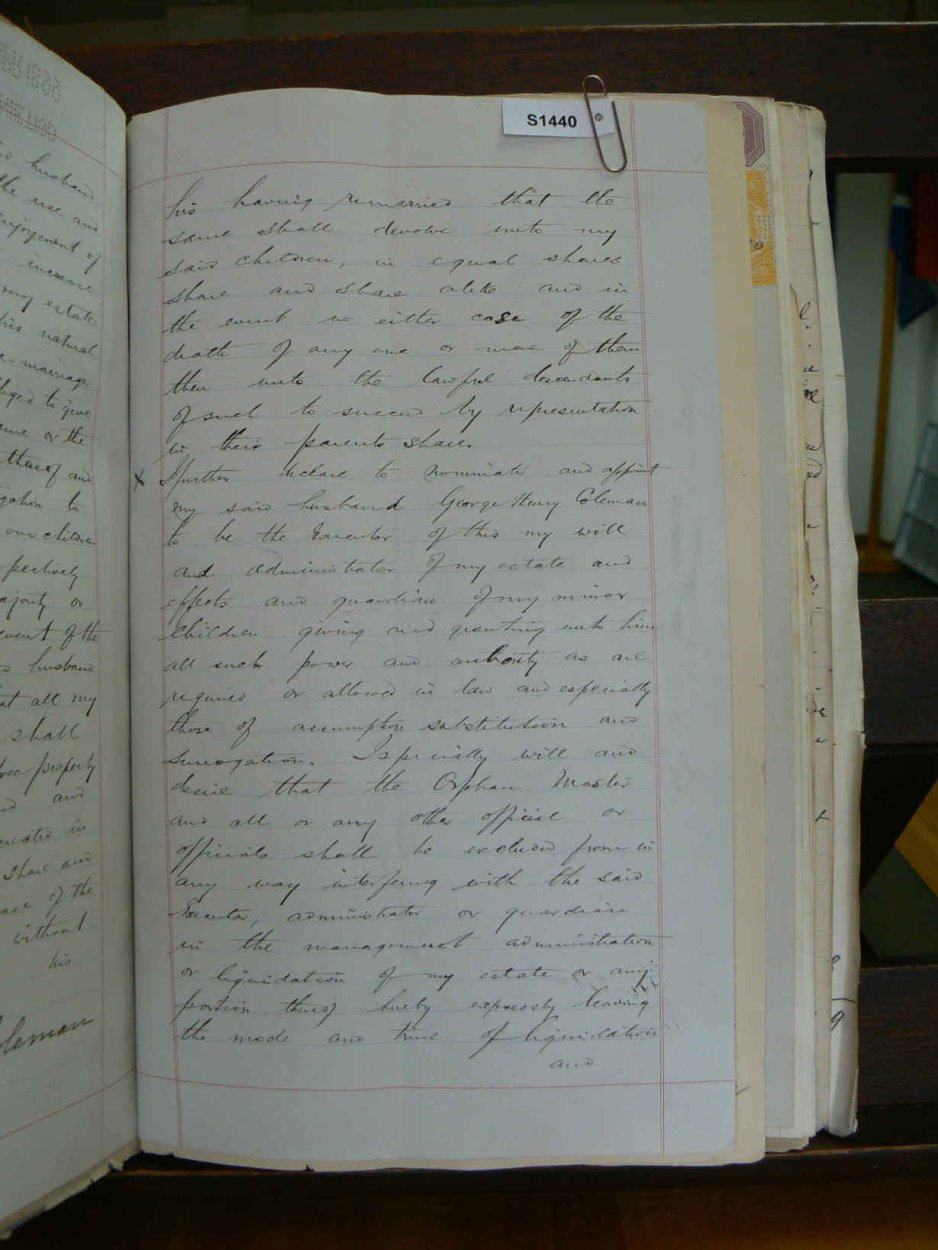 S1440
his having remarried that the
same shall devolve unto my
said children, in equal shares
share and share alike and in
the event in either case of the
death of any one or more of them
then unto the lawful descendants
of such to succeed by representation
in their parents share.
x I further declare to nominate and appoint
my said husband George Henry Coleman
to be the Executor of this my will
and administrator of my estate and
effects and guardian of my minor
children giving and granting unto him
all such power and authority as are
required or allowed in law and especially
those of assumption substitution and
surrogation. I specially will and
desire that the Orphan Master
and all or any other official or
officials shall be excluded from in
any way interfering with the said
Executor, administrator or guardian
in the management administration
or liquidation of my estate or any
portion thereof hereby expressly leaving
the mode and time of liquidation
and
husband
the use and
enjoyment of
income
my estate
his natural
re-marriage
obliged to give
or the
thereof and
to
our children
pectively
ajority or
event of the
husband
at all my
shall
free property
and
in
share and
of the
without
his
oleman